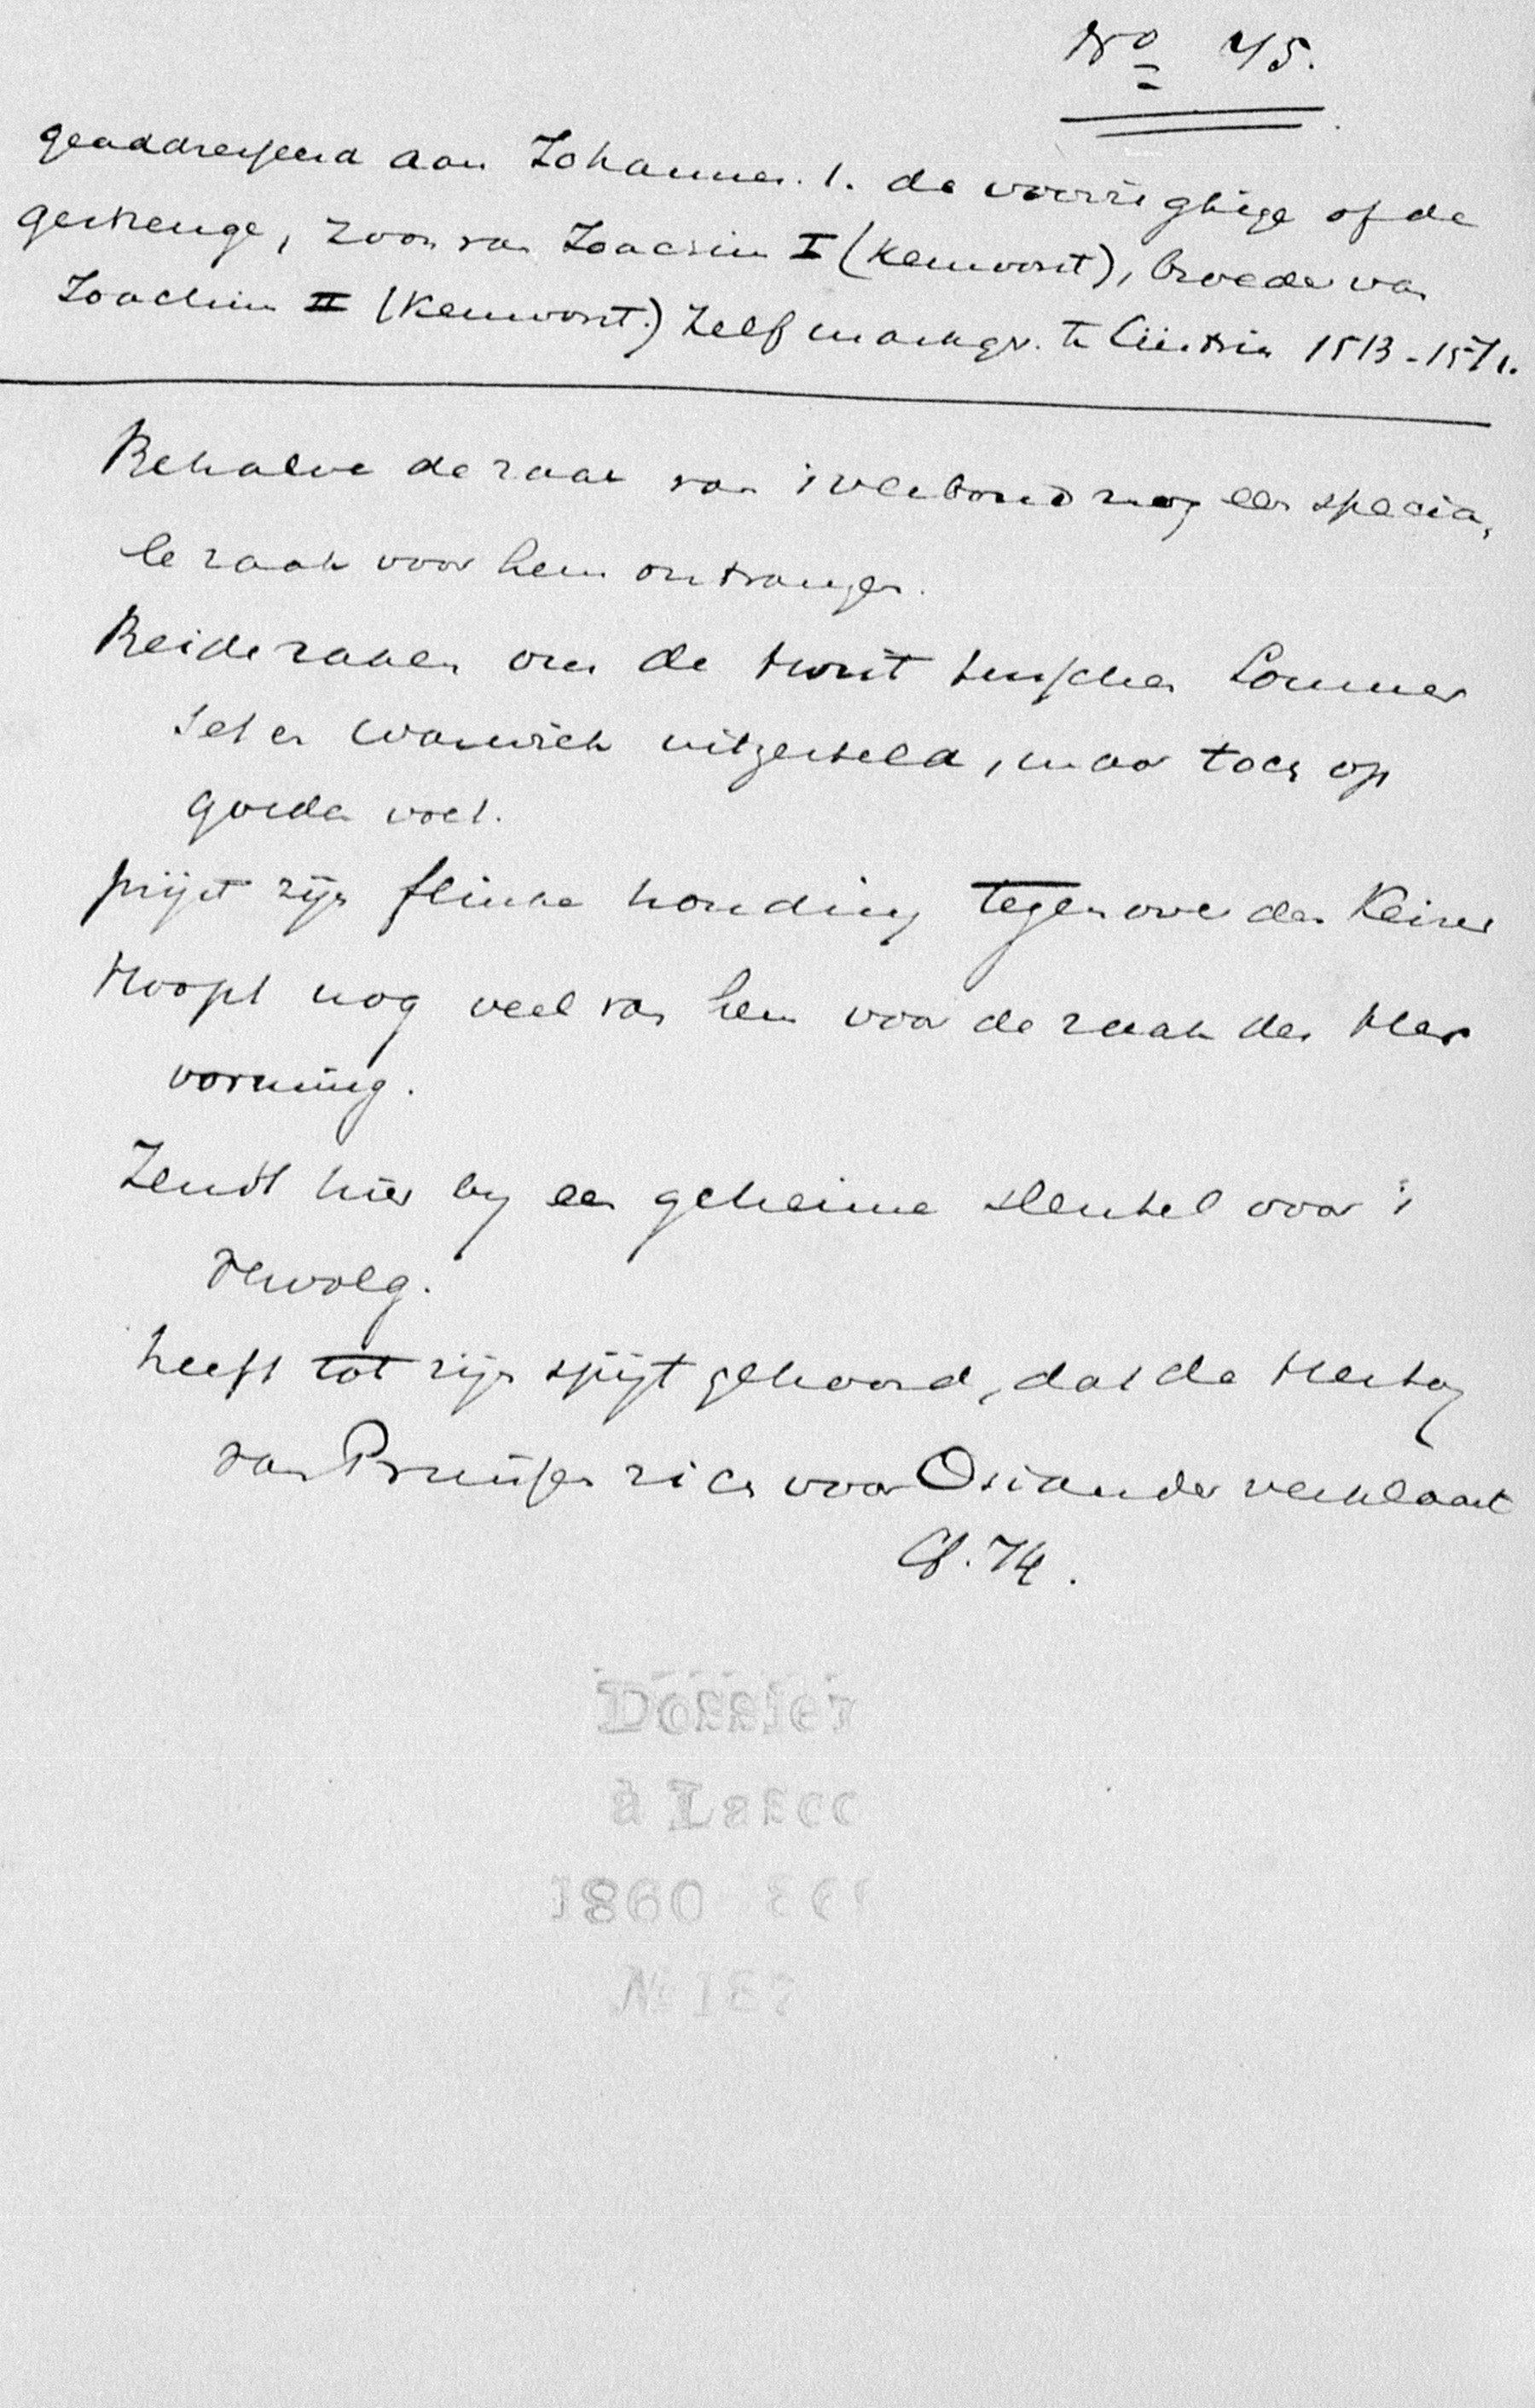 No 75.
geaddresseerd aan Johannes. 1. de voorzigtige of de
gestrenge, zoon van Joachim I (Keurvorst), broeder van
Joachim II (Keurvorst.) Zelf markgr. te Cüstrin 1513-1571.
Behalve de zaak van 't verbond nog een specia,
le zaak voor hem ontvangen.
Beide zaken om de twist tusschen Sommer
set en Warwich uitgesteld, maar toch op
goeden voet.
prijst zijn flinke houding tegenover den Keizer
Hoopt nog veel van hem voor de zaak der Her
vorming.
Zendt hier bij een geheime sleutel voor 't
vervolg.
heeft tot zijn spijt gehoord, dat de Hertog
van Pruissen zich voor Osiander verklaart
Cf. 74.
Dossier
à Lasco
1860
No 187